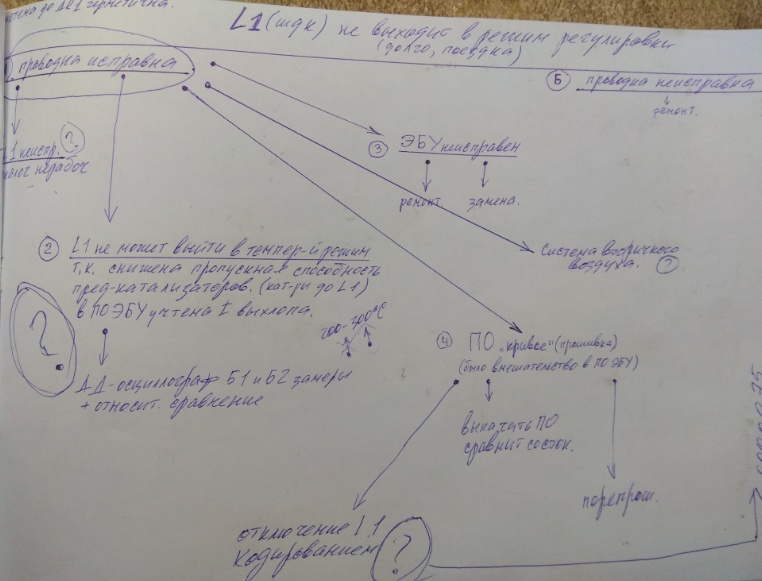 до ДК1 герметична.
L1 (шдк) не выходит в режим регулировки
(долго, поездка)
проводка исправна
Б проводка неисправна
ремонт.
1 неиспр. ?
нерабоч
3 ЭБУ неисправен
ремонт. замена.
2 L1 не может выйти в темпер-й режим
т.к. снижена пропускная способность
пред-катализаторов. (кат-ры до L1)
в ПО ЭБУ учтена t выхлопа.
?
200-300°C
Система вторичного
воздуха. ?
4 ПО „кривое" (прошивка)
(было вмешательство в ПО ЭБУ)
ДД-осциллограф Б1 и Б2 замеры
+ относит. сравнение
выкачать ПО
сравнить состоян.
перепрош.
отключение L1
кодированием ?